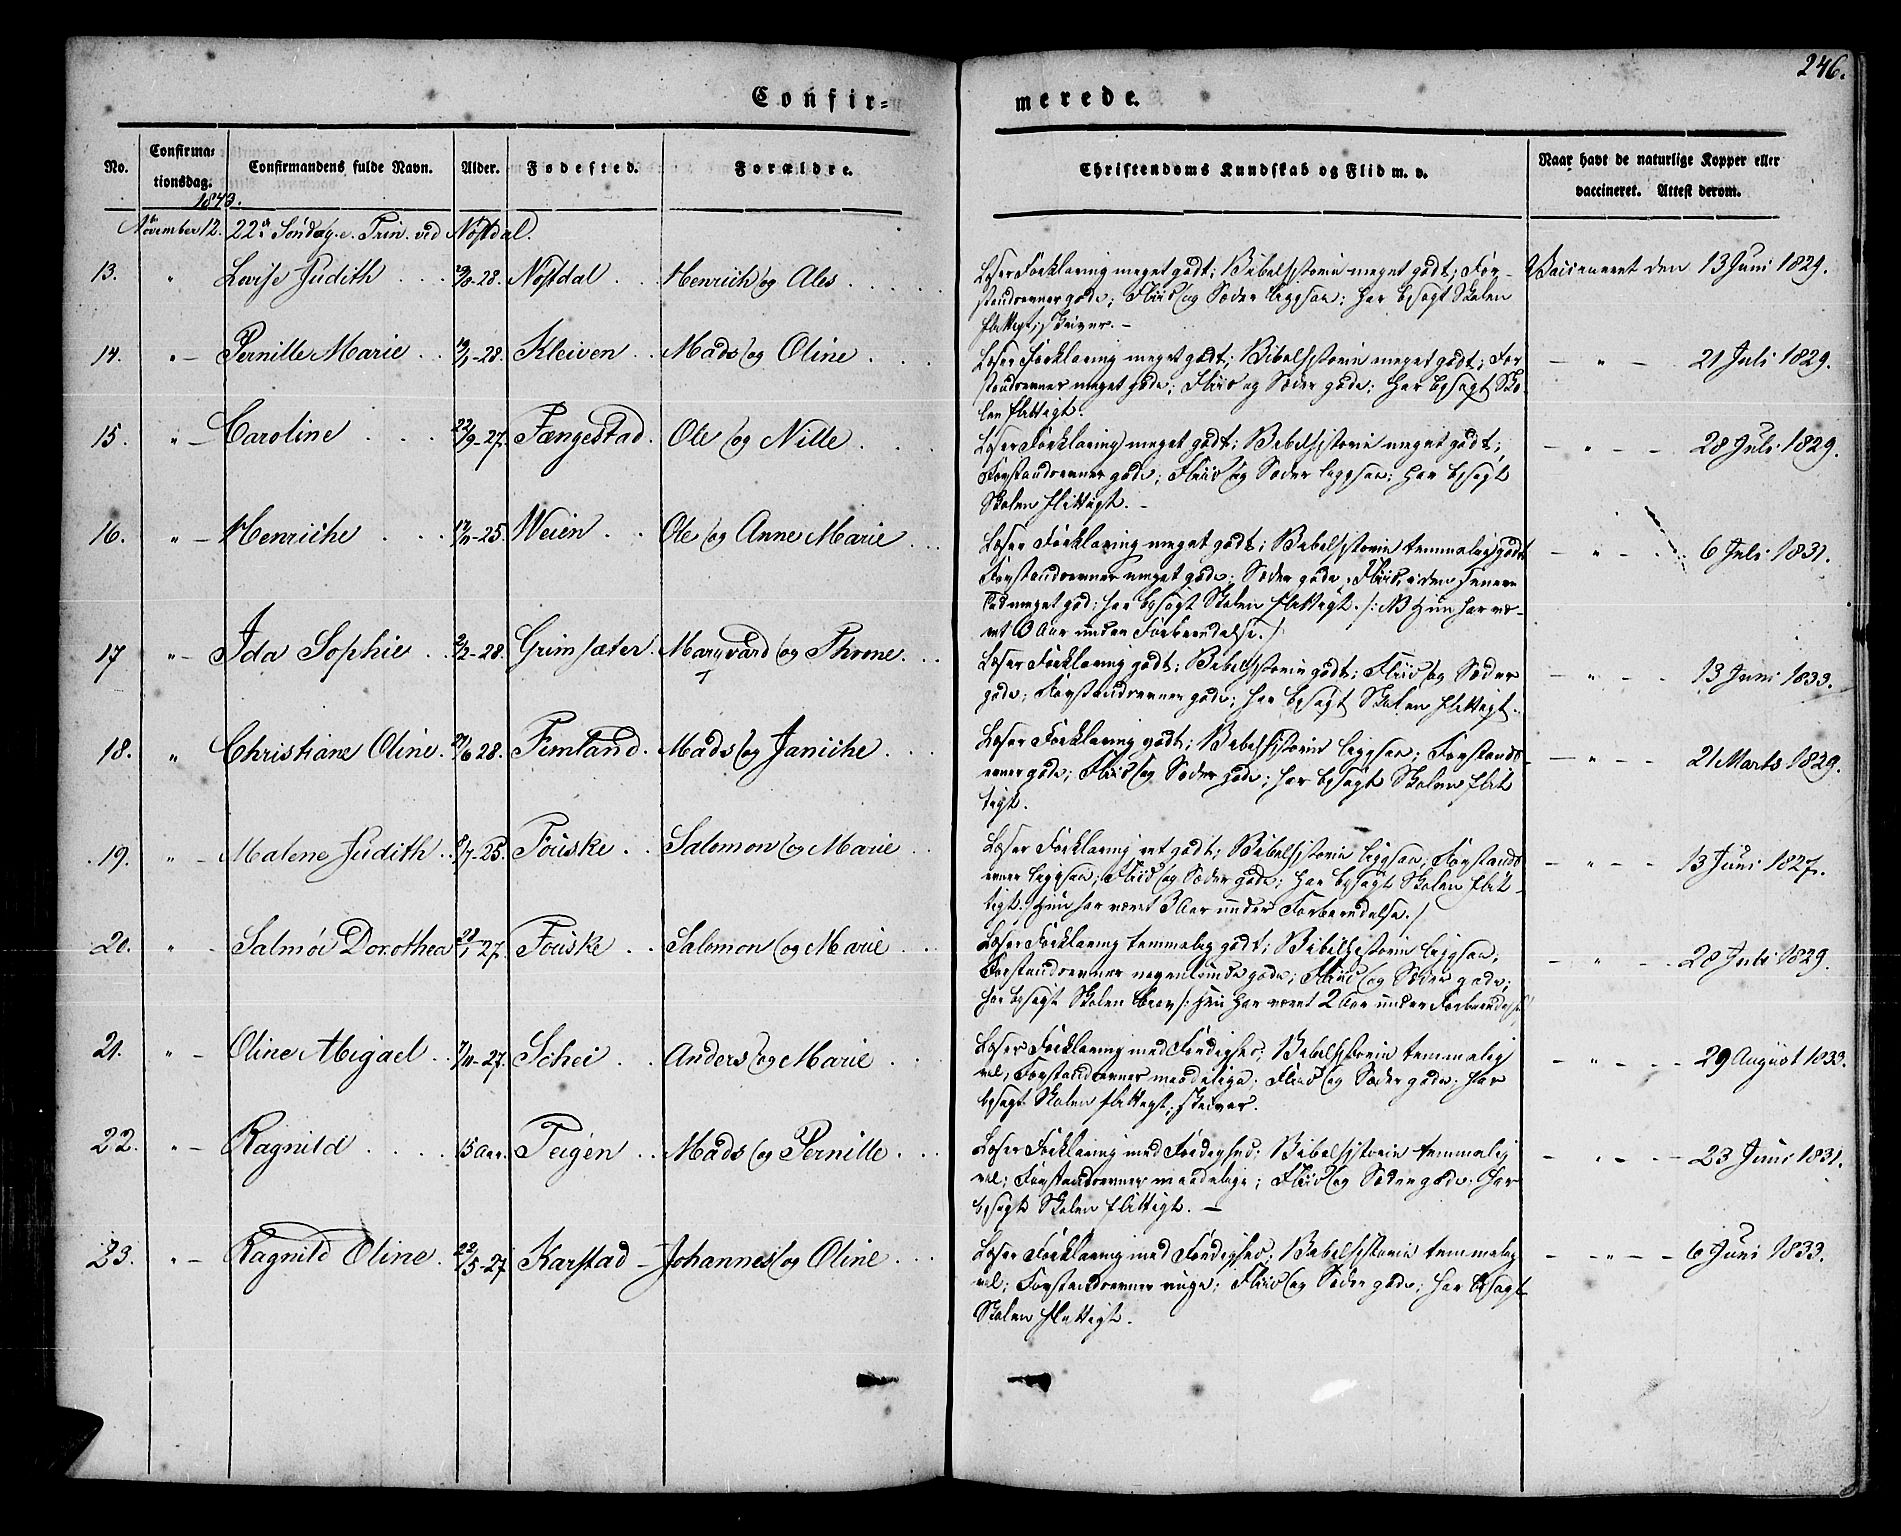 246.
Confir=
merede.
No.
Confirma=
tionsdag.
Confirmandens fulde Navn.
Alder.
Fødested.
Forældre.
Christendoms Kundskab og Flid m. v.
Naar havt de naturlige Kopper eller
vaccineret. Attest derom.
1843.
November 12. 22de Søndag e. Trin. ved Nøstdal.
13. " Lovise Judith . . . -28. Nøstdal . . Henrich og Ales . . . .
Læser Forklaring meget godt; Bibelhistorie meget godt; For-
standsevner gode; Fliid og Sæder ligesaa; har besøgt Skolen
flittigt; skriver. -
Vaccineret den 13 Juni 1829.
14. " - Pernille Marie . . -28. Kleiven . . Mads og Oline . . .
Læser Forklaring meget godt; Bibelhistorie meget godt; For-
standsevner meget gode; Fliid og Sæder gode; har besøgt Sko-
len flittigt.
- " - 21 Juli 1829.
15. " - Caroline . . . 22/9-27. Fængestad. Ole og Nille . . .
Læser Forklaring meget godt; Bibelhistorie meget godt;
Forstandsevner gode; Fliid og Sæder ligesaa; har besøgt
Skolen flittigt. -
- " - - 28 Juli 1829.
16. " - Henriche . . . -25. Weien . . Ole og Anne Marie . . .
Læser Forklaring meget godt; Bibelhistorie temmelig godt
Forstandsevner meget gode; Sæder gode, Fliid, i den senere
Tid meget god; har besøgt Skolen flittigt. /: NB Hun har væ-
ret Aar under Forberedelse. /
- " - - 6 Juli 1831.
17 " - Ida Sophie . . 2/2-28. Grimsæter. Marqvard og Throne. . .
Læser Forklaring godt; Bibelhistorie godt; Fliid og Sæder
gode; Forstandsevner gode; har besøgt Skolen flittigt. -
- " - - 13 Juni 1833.
18. " Christiane Oline. /6 28. Femland. Mads og Janiche . . .
Læser Forklaring godt; Bibelhistorie ligesaa; Forstands-
evner gode; Fliid og Sæder gode; har besøgt Skolen flit
tigt.
- " - - 21 Marts 1829.
19. " - Malene Judith . . /7-25. Fouske . . Salomon og Marie . .
Læser Forklaring ret godt; Bibelhistorie ligesaa; Forstands-
evner ligesaa; Fliid og Sæder gode; har besøgt Skolen flit-
tigt. / Hun har været 3 Aar under Forberedelse. /
- " - - 13 Juni 1827.
20. " - Salmói Dorothea 28/1-27. Fouske . . Salomon og Marie . . .
Læser Forklaring temmelig godt; Bibelhistorie ligesaa;
Forstandsevner nogenlunde gode; Fliid og Sæder gode;
har besøgt Skolen /: Hun har været 2 Aar under Forberedelse /
- " - - 28 Juli 1829.
21. " - Oline Abigael . . /11-27. Schei . . Anders og Marie . . .
Læser Forklaring med Færdighed; Bibelhistorie temmelig
vel; Forstandsevner maadelige; Fliid og Sæder gode; har
besøgt Skolen flittigt; skriver.
- " - - 29 August 1833.
22. " - Ragnild . . . . 15 Aar. Teigen . . Mads og Pernille . . .
Læser Forklaring med Færdighed; Bibelhistorie temmelig
vel; Forstandsevner maadelige; Fliid og Sæder gode; har
besøgt Skolen flittigt. -
- " - - 23 Juni 1831.
23. " - Ragnild Oline . 22/5-27 Karstad - Johannes og Oline . . .
Læser Forklaring med Færdighed; Bibelhistorie temmelig
vel; Forstandsevner ringe; Fliid og Sæder gode; har besøgt
Skolen flittigt.
- " - - 6 Juni 1833.